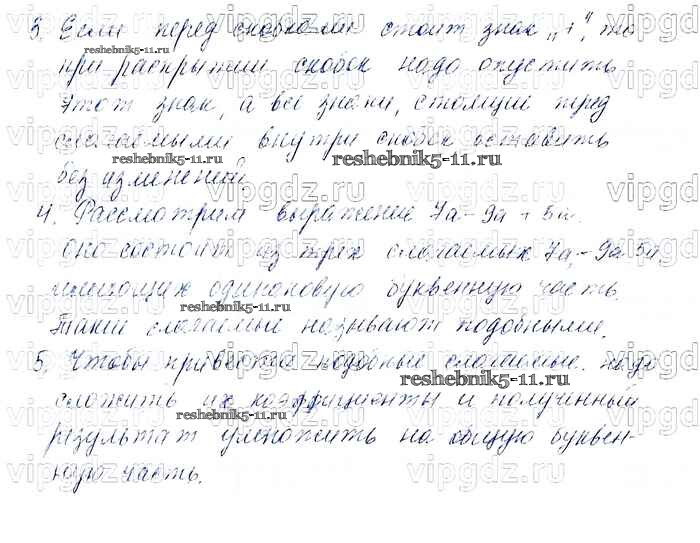 3. Если перед скобками стоит знак „+“, то
при раскрытии скобок надо опустить
этот знак, а все знаки, стоящие перед
слагаемыми внутри скобок оставить
без изменений.
4. Рассмотрим выражение 7а - 9а + 5а.
оно состоит из трех слагаемых 7а, - 9а 5а,
имеющих одинаковую буквенную часть
Такие слагаемые называют подобными.
5. Чтобы привести подобные слагаемые. надо
сложить их коэффициенты и полученный
результат умножить на общую буквен-
ную часть.
reshebnik5-11.ru
vipgdz.ru